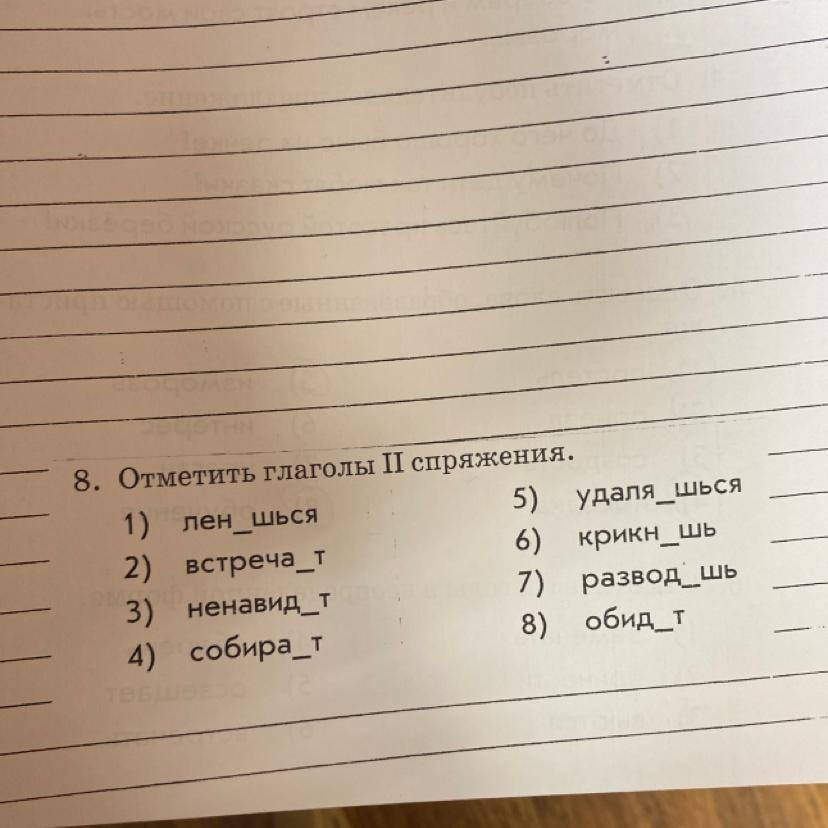 8. Отметить глаголы II спряжения.
1) лен_шься
2) встреча_т
3) ненавид_т
4) собира_т
5) удаля_шься
6) крикн_шь
7) развод_шь
8) обид_т